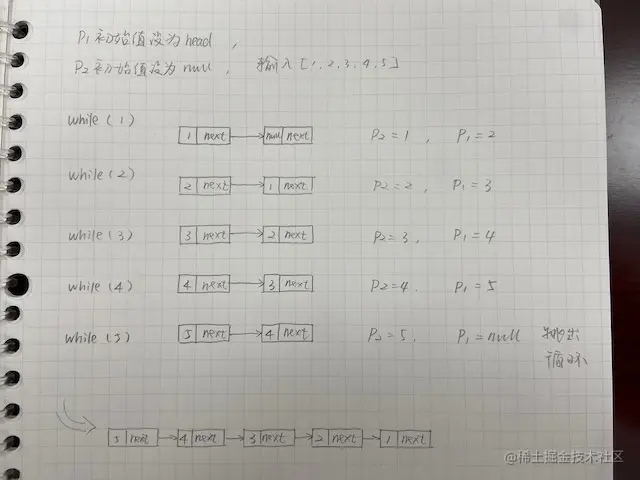 P1初始值设为head,
P2初始值设为null, 输入[1,2,3,4,5]
while(1) 1 next null next P2=1, P1=2
while(2) 2 next 1 next P2=2, P1=3
while(3) 3 next 2 next P2=3, P1=4
while(4) 4 next 3 next P2=4. P1=5
while(5) 5 next 4 next P2=5. P1=null 抛出
循环
5 next 4 next 3 next 2 next 1 next
@稀土掘金技术社区